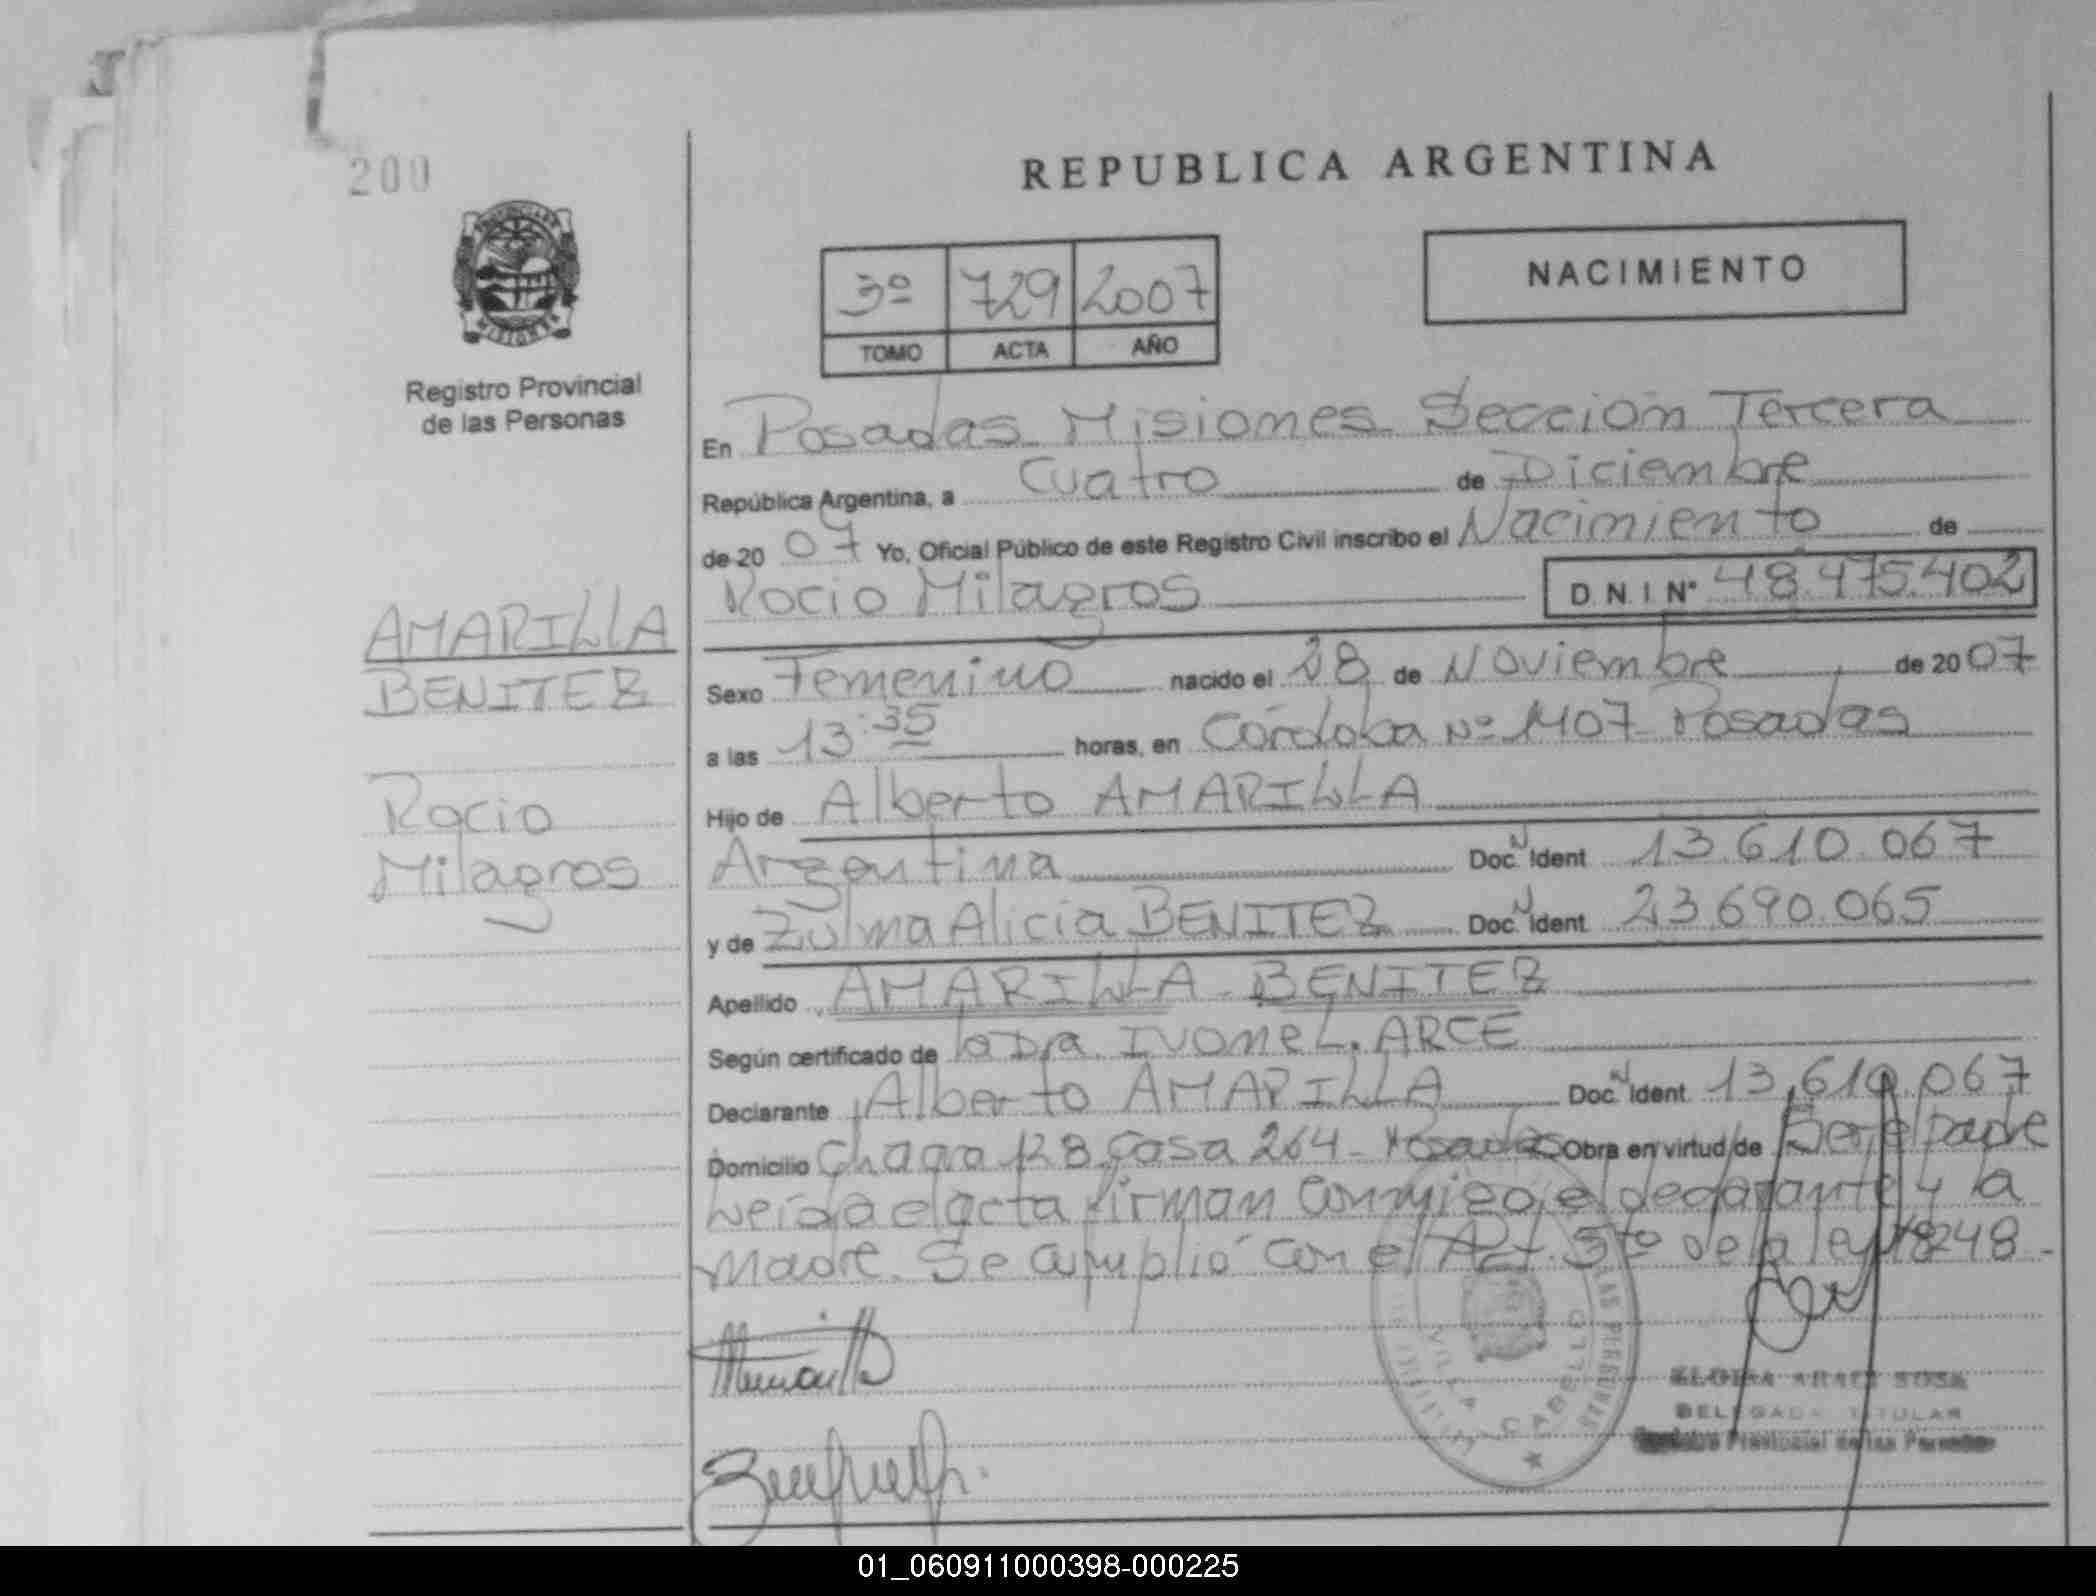 200
REPUBLICA ARGENTINA
MISIONES
Registro Provincial
de las Personas
3º 729 2007
TOMO ACTA AÑO
NACIMIENTO
En Posadas Misiones Sección Tercera
República Argentina, a Cuatro de Diciembre
de 20 07 Yo, Oficial Público de este Registro Civil inscribo el Nacimiento de
Rocio Milagros D.N.I Nº 48.475.402
AMARILLA
BENITEZ
Rocio
Milagros
Sexo Femenino nacido el 28 de Noviembre de 20 07
a las 13:35 horas, en Córdoba Nº 1407 Posadas
Hijo de Alberto AMARILLA
Argentina Doc. N Ident 13.610.067
y de Zulma Alicia BENITEZ Doc. N Ident. 23.690.065
Apellido AMARILLA BENITEZ
Según certificado de la Dra. Ivone L. ARCE
Declarante Alberto AMARILLA Doc. N Ident. 13.610.067
Domicilio Chacra 128 Casa 264 - Posadas Obra en virtud de Ser el padre
Leída el acta firman conmigo el declarante y la
madre. Se cumplió con el Art. 5to de la ley 18248 -
VILLA CABELLO
LAS PERSONAS
SOSA
DELEGADA TITULAR
Registro Provincial de las Personas
01_060911000398-000225